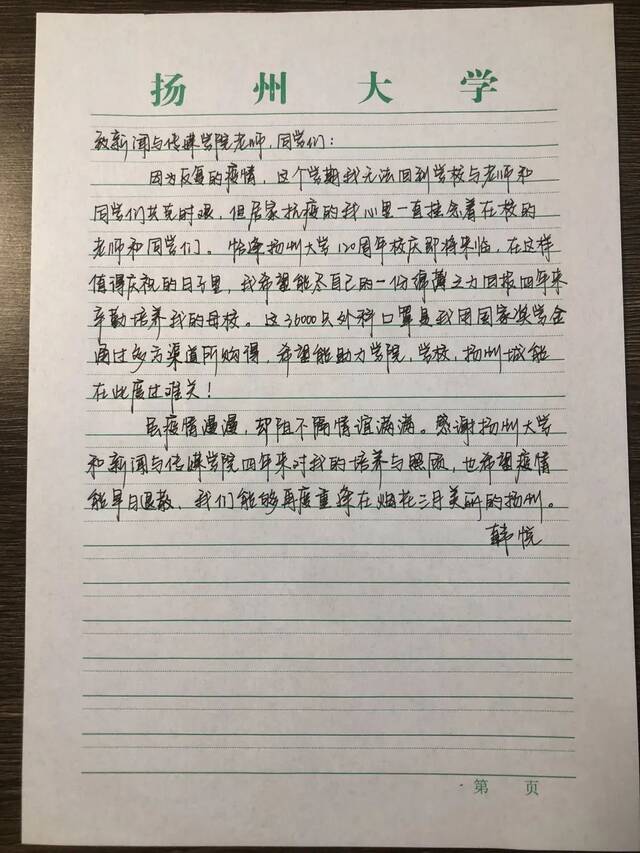 扬州大学
致新闻与传媒学院老师,同学们:
因为反复的疫情,这个学期我无法回到学校与老师和
同学们共克时艰,但居家抗疫的我心里一直挂念着在校的
老师和同学们。恰逢扬州大学120周年校庆即将来临,在这样
值得庆祝的日子里,我希望能尽自己的一份绵薄之力回报四年来
辛勤培养我的母校。这36000只外科口罩是我用国家奖学金
通过多方渠道所购得,希望能助力学院,学校,扬州城能
在此度过难关!
虽疫情漫漫,却阻不隔情谊满满。感谢扬州大学
和新闻与传媒学院四年来对我的培养与照顾,也希望疫情
能早日退散,我们能够再度重逢在烟花三月美丽的扬州。
韩悦
第 页